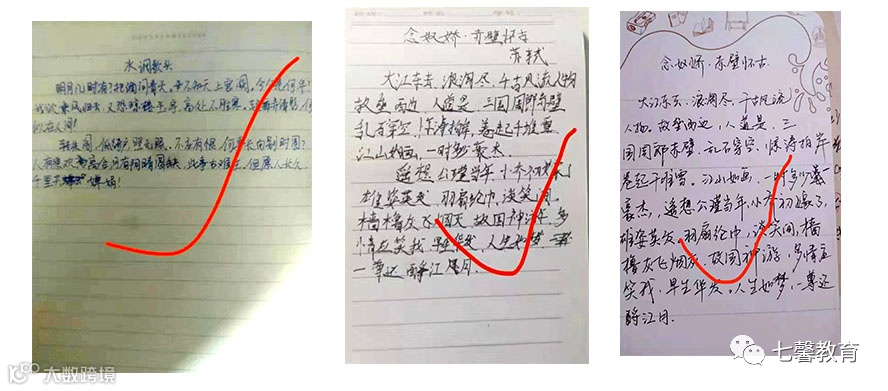 水调歌头
明月几时有?把酒问青天。不知天上宫阙,今夕是何年?
我欲乘风归去,又恐琼楼玉宇,高处不胜寒,起舞弄清影,何
似在人间!
转朱阁,低绮户,照无眠。不应有恨,何事长向别时圆?
人有悲欢离合,月有阴晴圆缺,此事古难全。但愿人长久,
千里共婵娟!
念奴娇·赤壁怀古
苏轼
大江东去,浪淘尽,千古风流人物
故垒西边,人道是,三国周郎赤壁
乱石穿空,惊涛拍岸,卷起千堆雪
江山如画,一时多少豪杰。
遥想公瑾当年,小乔初嫁了
雄姿英发,羽扇纶巾,谈笑间,
樯橹灰飞烟灭,故国神游,多
情应笑我,早生华发,人生如梦
一尊还酹江月。
念奴娇·赤壁怀古
大江东去,浪淘尽,千古风流
人物。故垒西边,人道是,三
国周郎赤壁。乱石穿空,惊涛拍岸
卷起千堆雪。江山如画,一时多少
豪杰,遥想公瑾当年,小乔初嫁了,
雄姿英发,羽扇纶巾,谈笑间,樯
橹灰飞烟灭。故国神游,多情应
笑我,早生华发。人生如梦,一尊还
酹江月.
七馨教育
大数跨境